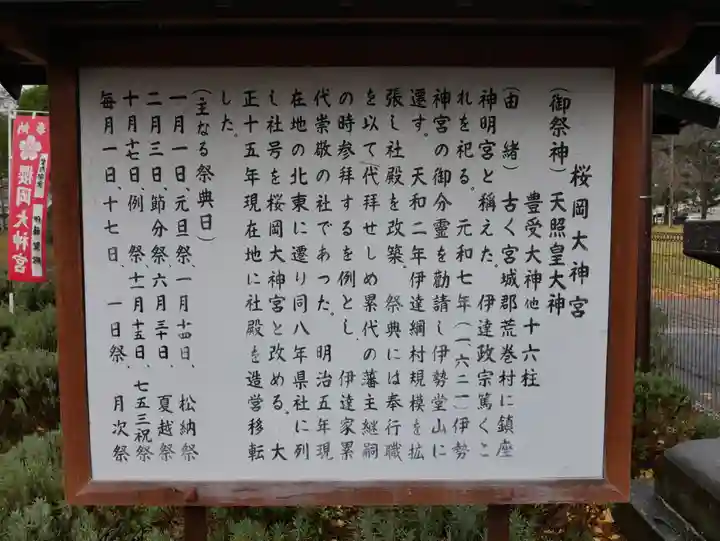 桜岡大神宮
(御祭神) 天照皇大神
豊受大神他十六柱
(由緒) 古く宮城郡荒巻村に鎮座
神明宮と稱えた。伊達政宗篤くこ
れを祀る。元和七年(一、六二一)伊勢
神宮の御分霊を勧請し伊勢堂山に
遷す。天和二年伊達綱村規模を拡
張し社殿を改築。祭典には奉行職
を以て代拝せしめ累代の藩主継嗣
の時参拝するを例とし、伊達家累
代崇敬の社であった。明治五年現
在地の北東に遷り同八年県社に列
し社号を桜岡大神宮と改める。大
正十五年現在地に社殿を造営移転
した。
(主なる祭典日)
一月一日、元旦祭、一月十四日、松納祭
二月三日、節分祭、六月三十日、夏越祭
十月十七日、例祭、十一月十五日、七五三祝祭
毎月一日十七日、一日祭、月次祭
奉納
櫻岡大神宮